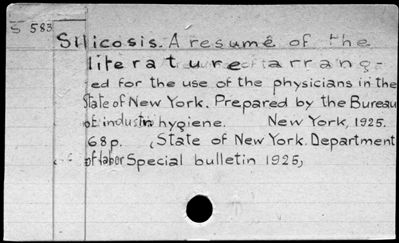 S 583
Silicosis. A resumé of the
literature arrang=
ed for the use of the physicians in the
State of New York. Prepared by the Bureau
of industri hygiene. New York, 1925.
68p. (State of New York. Department
of labor Special bulletin 1925,